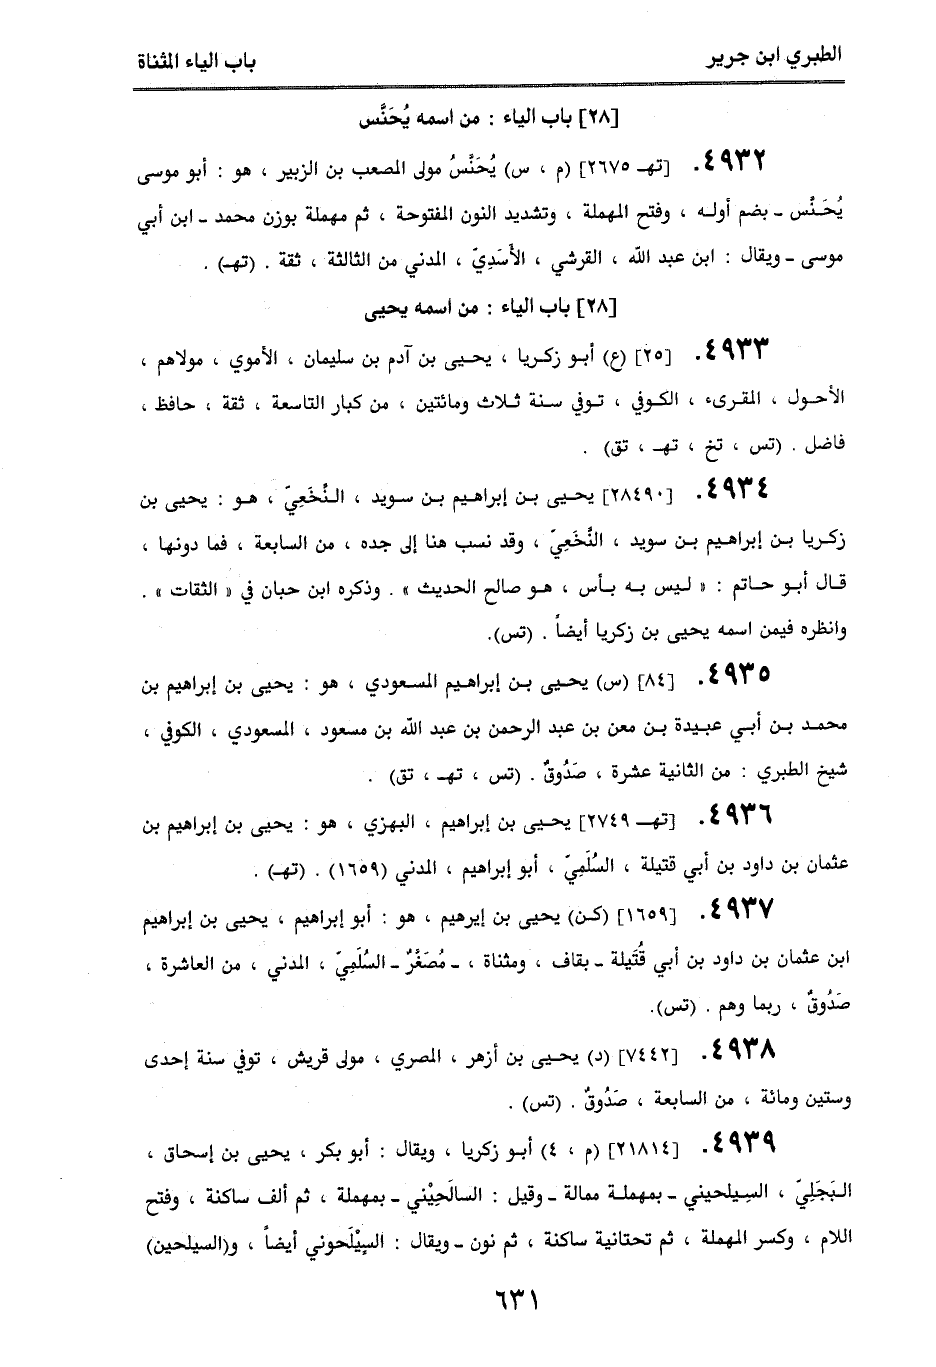 الطبري ابن جرير
باب الياء المثناة
[٢٨] باب الياء : من اسمه يُحَنَّس
٤٩٣٢. [تهـ ٢٦٧٥] (م ، س) يُحَنَّسُ مولى المصعب بن الزبير ، هو : أبو موسى
يُحَنُّس ـ بضم أوله ، وفتح المهملة ، وتشديد النون المفتوحة ، ثم مهملة بوزن محمد ـ ابن أبي
موسى ـ ويقال : ابن عبد الله ، القرشي ، الأَسَدِيّ ، المدني من الثالثة ، ثقة . (تهـ) .
[٢٨] باب الياء : من اسمه يحيى
٤٩٣٣. [٢٥] (ع) أبو زكريا ، يحيى بن آدم بن سليمان ، الأموي ، مولاهم ،
الأحول ، المقرىء ، الكوفي ، توفي سنة ثلاث ومائتين ، من كبار التاسعة ، ثقة ، حافظ ،
فاضل . (تس ، تخ ، تهـ ، تق) .
٤٩٣٤. [٢٨٤٩٠] يحيى بن إبراهيم بن سويد ، النُّخَعِيّ ، هو : يحيى بن
زكريا بن إبراهيم بن سويد ، النُّخَعِيّ ، وقد نسب هنا إلى جده ، من السابعة ، فما دونها ،
قال أبو حاتم : « ليس به بأس ، هو صالح الحديث » . وذكره ابن حبان في « الثقات » .
وانظره فيمن اسمه يحيى بن زكريا أيضاً . (تس).
٤٩٣٥. [٨٤] (س) يحيى بن إبراهيم المسعودي ، هو : يحيى بن إبراهيم بن
محمد بن أبي عبيدة بن معن بن عبد الرحمن بن عبد الله بن مسعود ، المسعودي ، الكوفي ،
شيخ الطبري : من الثانية عشرة ، صَدُوقٌ . (تس ، تهـ ، تق) .
٤٩٣٦. [تهـ ٢٧٤٩] يحيى بن إبراهيم ، البهزي ، هو : يحيى بن إبراهيم بن
عثمان بن داود بن أبي قتيلة ، السُلَمِيّ ، أبو إبراهيم ، المدني (١٦٥٩) . (تهـ) .
٤٩٣٧. [١٦٥٩] (كن) يحيى بن إيرهيم ، هو : أبو إبراهيم ، يحيى بن إبراهيم
ابن عثمان بن داود بن أبي قُتَيلة ـ بقاف ، ومثناة ، ـ مُصَغْرٌ ـ السُلَمِيّ ، المدني ، من العاشرة ،
صَدُوقٌ ، ربما وهم . (تس).
٤٩٣٨. [٧٤٤٢] (د) يحيى بن أزهر ، المصري ، مولى قريش ، توفي سنة إحدى
وستين ومائة ، من السابعة ، صَدُوقٌ . (تس) .
٤٩٣٩. [٢١٨١٤] (م ، ٤) أبو زكريا ، ويقال : أبو بكر ، يحيى بن إسحاق ،
البَجَلِيّ ، السِيلحيني ـ بمهملة ممالة ـ وقيل : السالَحِيْني ـ بمهملة ، ثم ألف ساكنة ، وفتح
اللام ، وكسر المهملة ، ثم تحتانية ساكنة ، ثم نون ـ ويقال : السيْلَحوني أيضاً ، و(السيلحين)
٦٣١